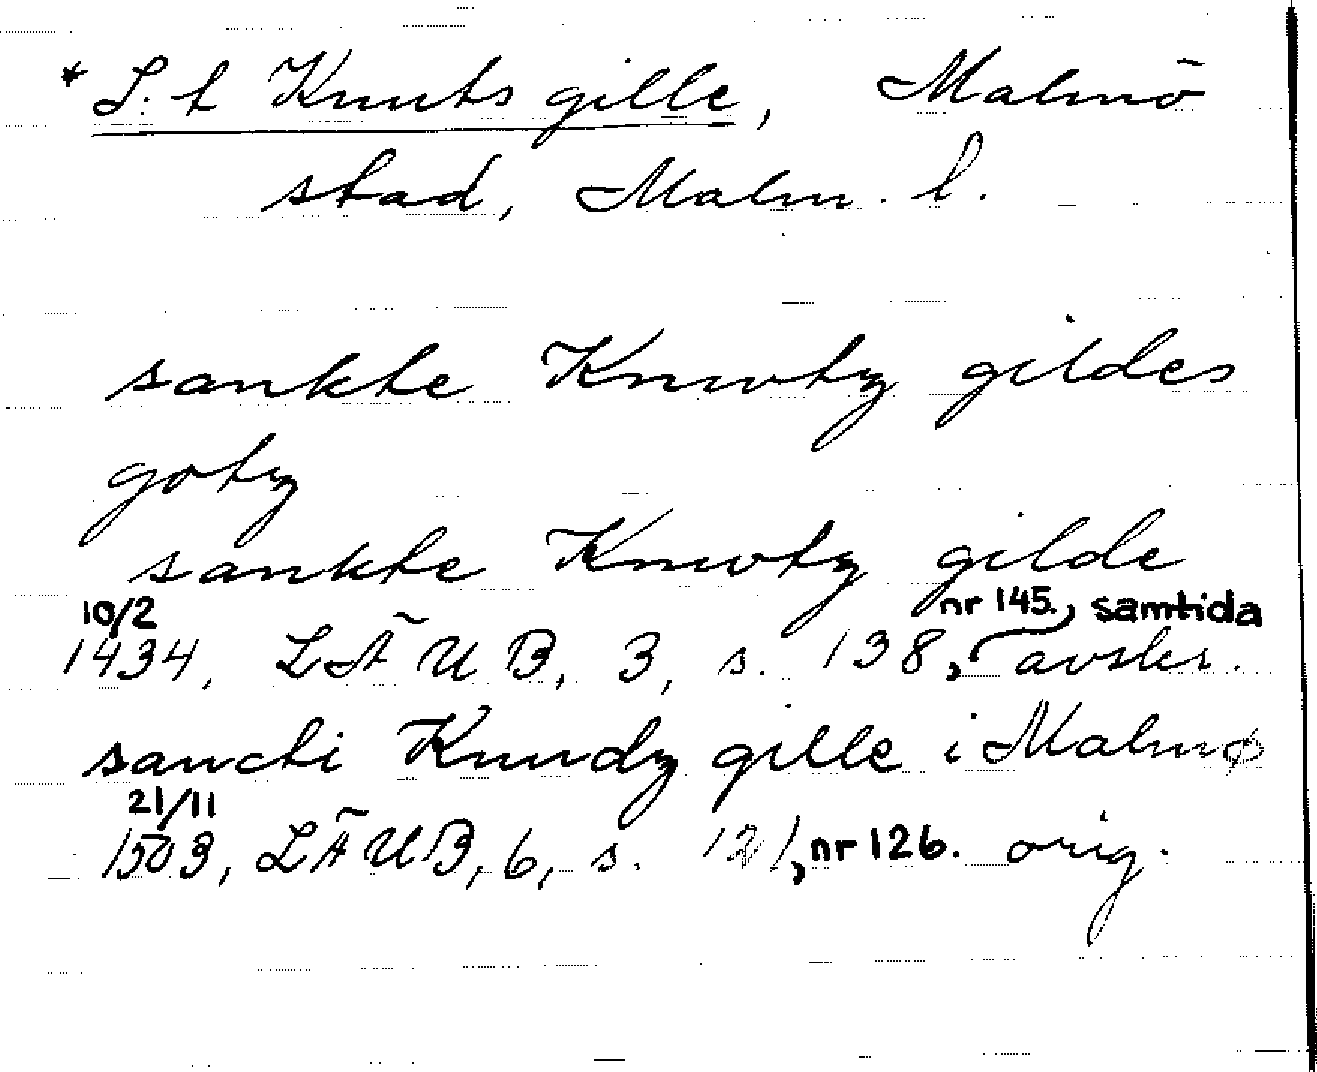 * S:t Knuts gille, Malmö
stad, Malm. l.
sankte Knwtz gildes
gotz
sankte Knwtz gilde
10/2 nr 145. samtida
1434, LÄUB, 3, s. 138, avskr.
sancti Knudz gille i Malmø
21/11
1503, LÄUB, 6, s. 121, nr 126. orig.